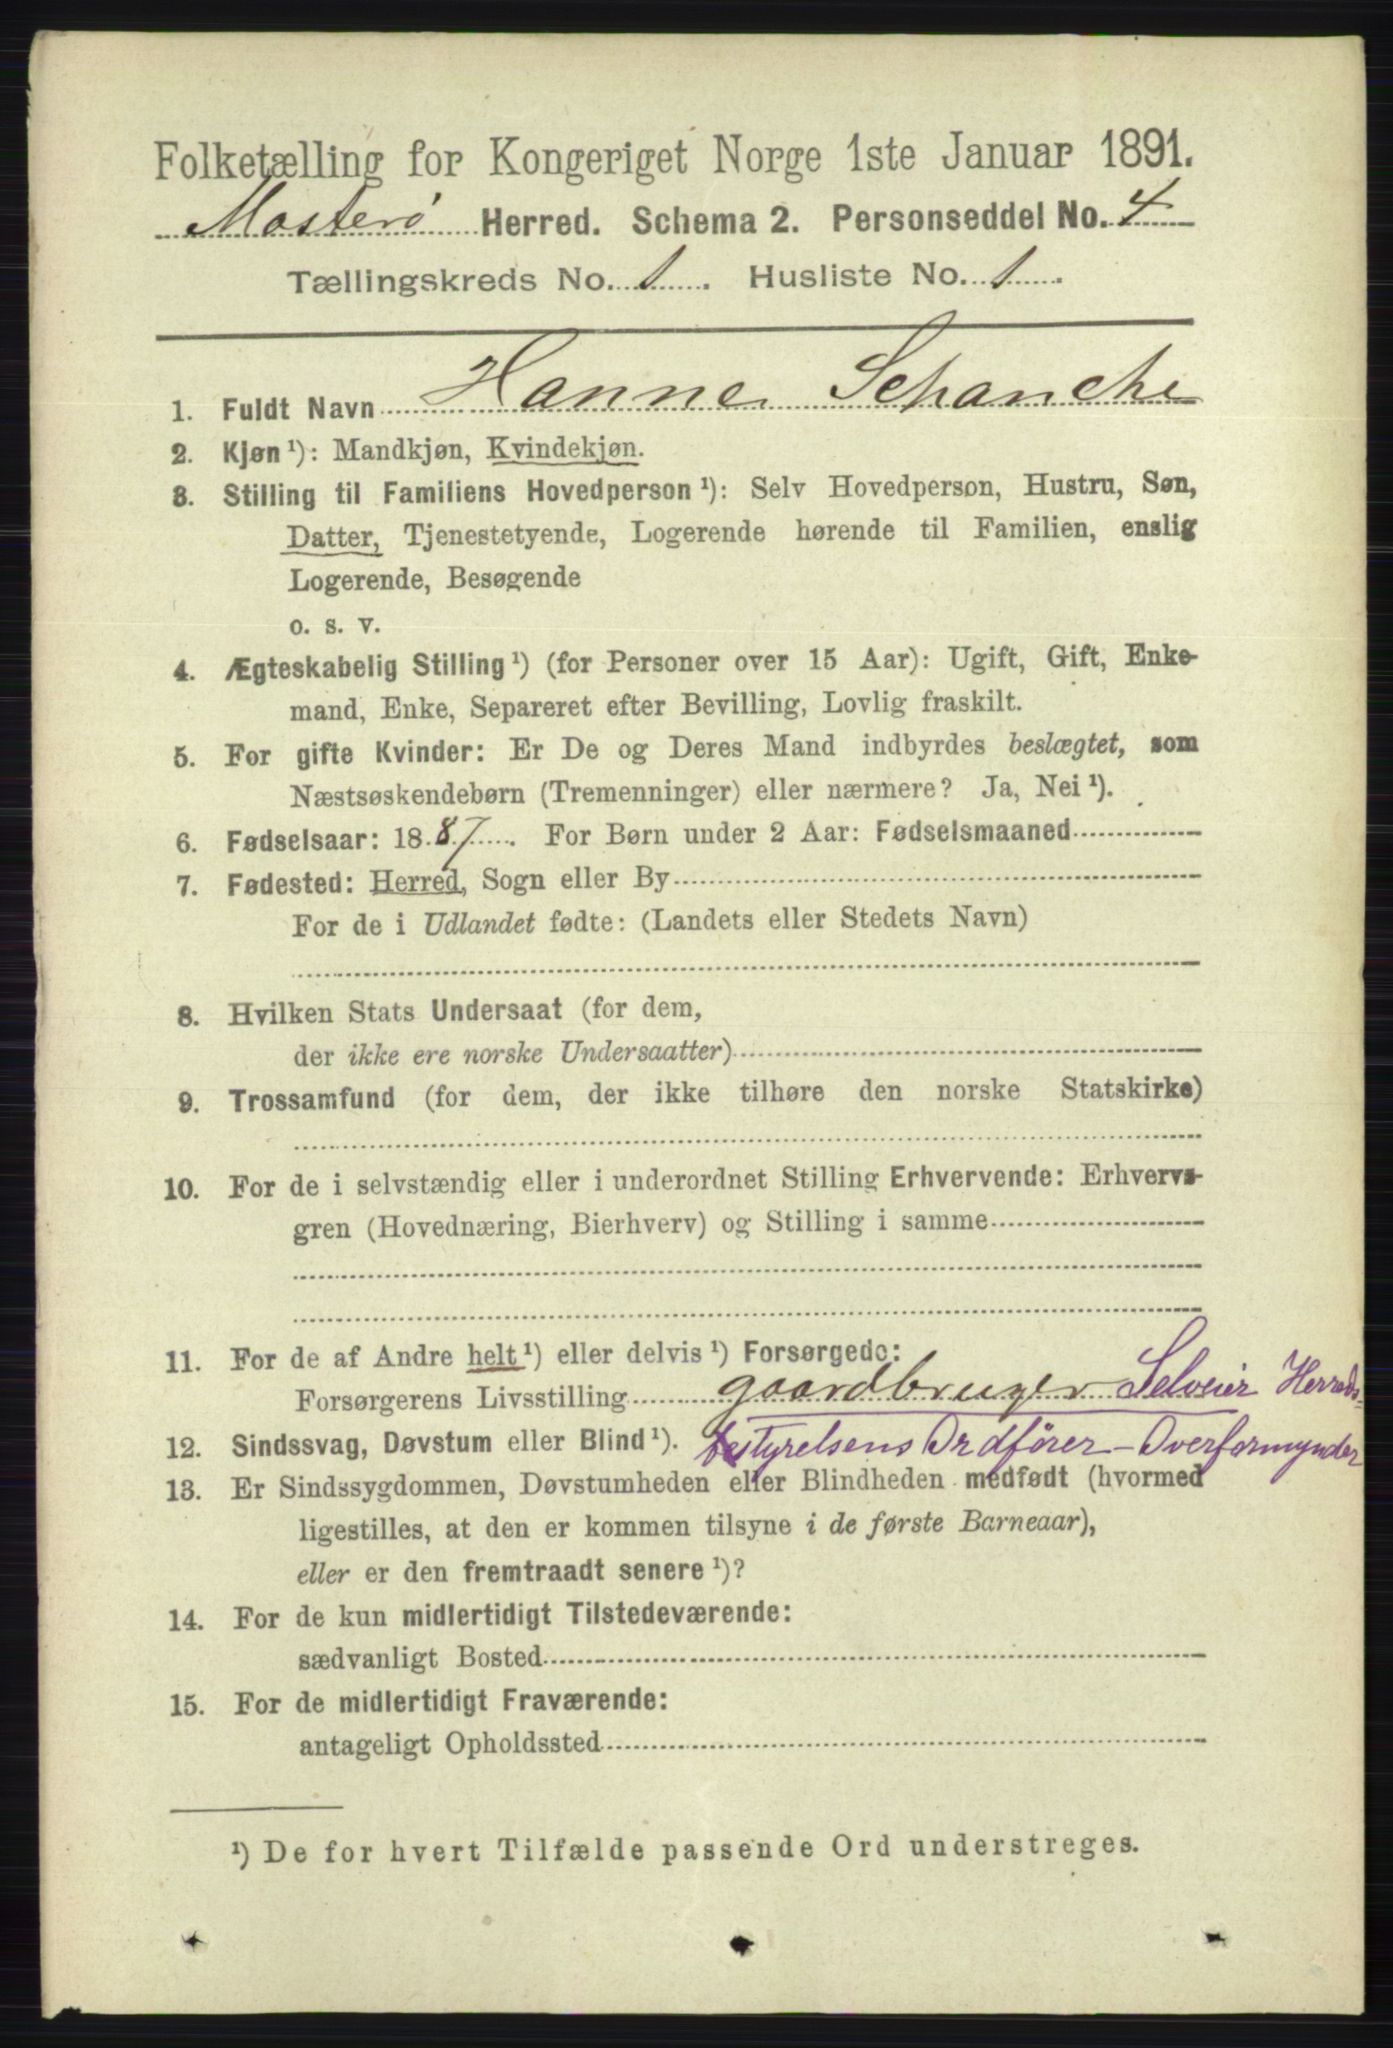 Folketælling for Kongeriget Norge 1ste Januar 1891.
Mosterø Herred. Schema 2. Personseddel No. 4
Tællingskreds No. 1. Husliste No. 1.
1. Fuldt Navn Hanne Schanche
2. Kjøn ¹): Mandkjøn, Kvindekjøn.
3. Stilling til Familiens Hovedperson ¹): Selv Hovedperson, Hustru, Søn,
Datter, Tjenestetyende, Logerende hørende til Familien, enslig
Logerende, Besøgende
o. s. v.
4. Ægteskabelig Stilling ¹) (for Personer over 15 Aar): Ugift, Gift, Enke-
mand, Enke, Separeret efter Bevilling, Lovlig fraskilt.
5. For gifte Kvinder: Er De og Deres Mand indbyrdes beslægtet, som
Næstsøskendebørn (Tremenninger) eller nærmere? Ja, Nei ¹).
6. Fødselsaar: 1887. For Børn under 2 Aar: Fødselsmaaned
7. Fødested: Herred, Sogn eller By
For de i Udlandet fødte: (Landets eller Stedets Navn)
8. Hvilken Stats Undersaat (for dem,
der ikke ere norske Undersaatter)
9. Trossamfund (for dem, der ikke tilhøre den norske Statskirke)
10. For de i selvstændig eller i underordnet Stilling Erhvervende: Erhvervs-
gren (Hovednæring, Bierhverv) og Stilling i samme
11. For de af Andre helt ¹) eller delvis ¹) Forsørgede:
Forsørgerens Livsstilling gaardbruger Selveier Herreds-
12. Sindssvag, Døvstum eller Blind ¹). bestyrelsens Ordfører - Overformynder
13. Er Sindssygdommen, Døvstumheden eller Blindheden medfødt (hvormed
ligestilles, at den er kommen tilsyne i de første Barneaar),
eller er den fremtraadt senere ¹)?
14. For de kun midlertidigt Tilstedeværende:
sædvanligt Bosted
15. For de midlertidigt Fraværende:
antageligt Opholdssted
¹) De for hvert Tilfælde passende Ord understreges.